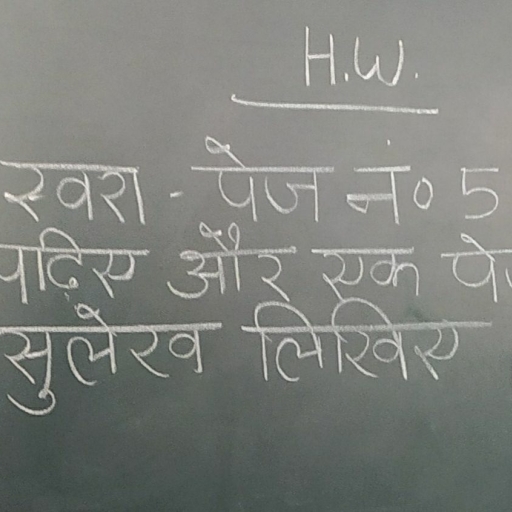 H.W.
स्वरा - पेज नं० 5
पढ़िए और एक
सुलेख लिखिए